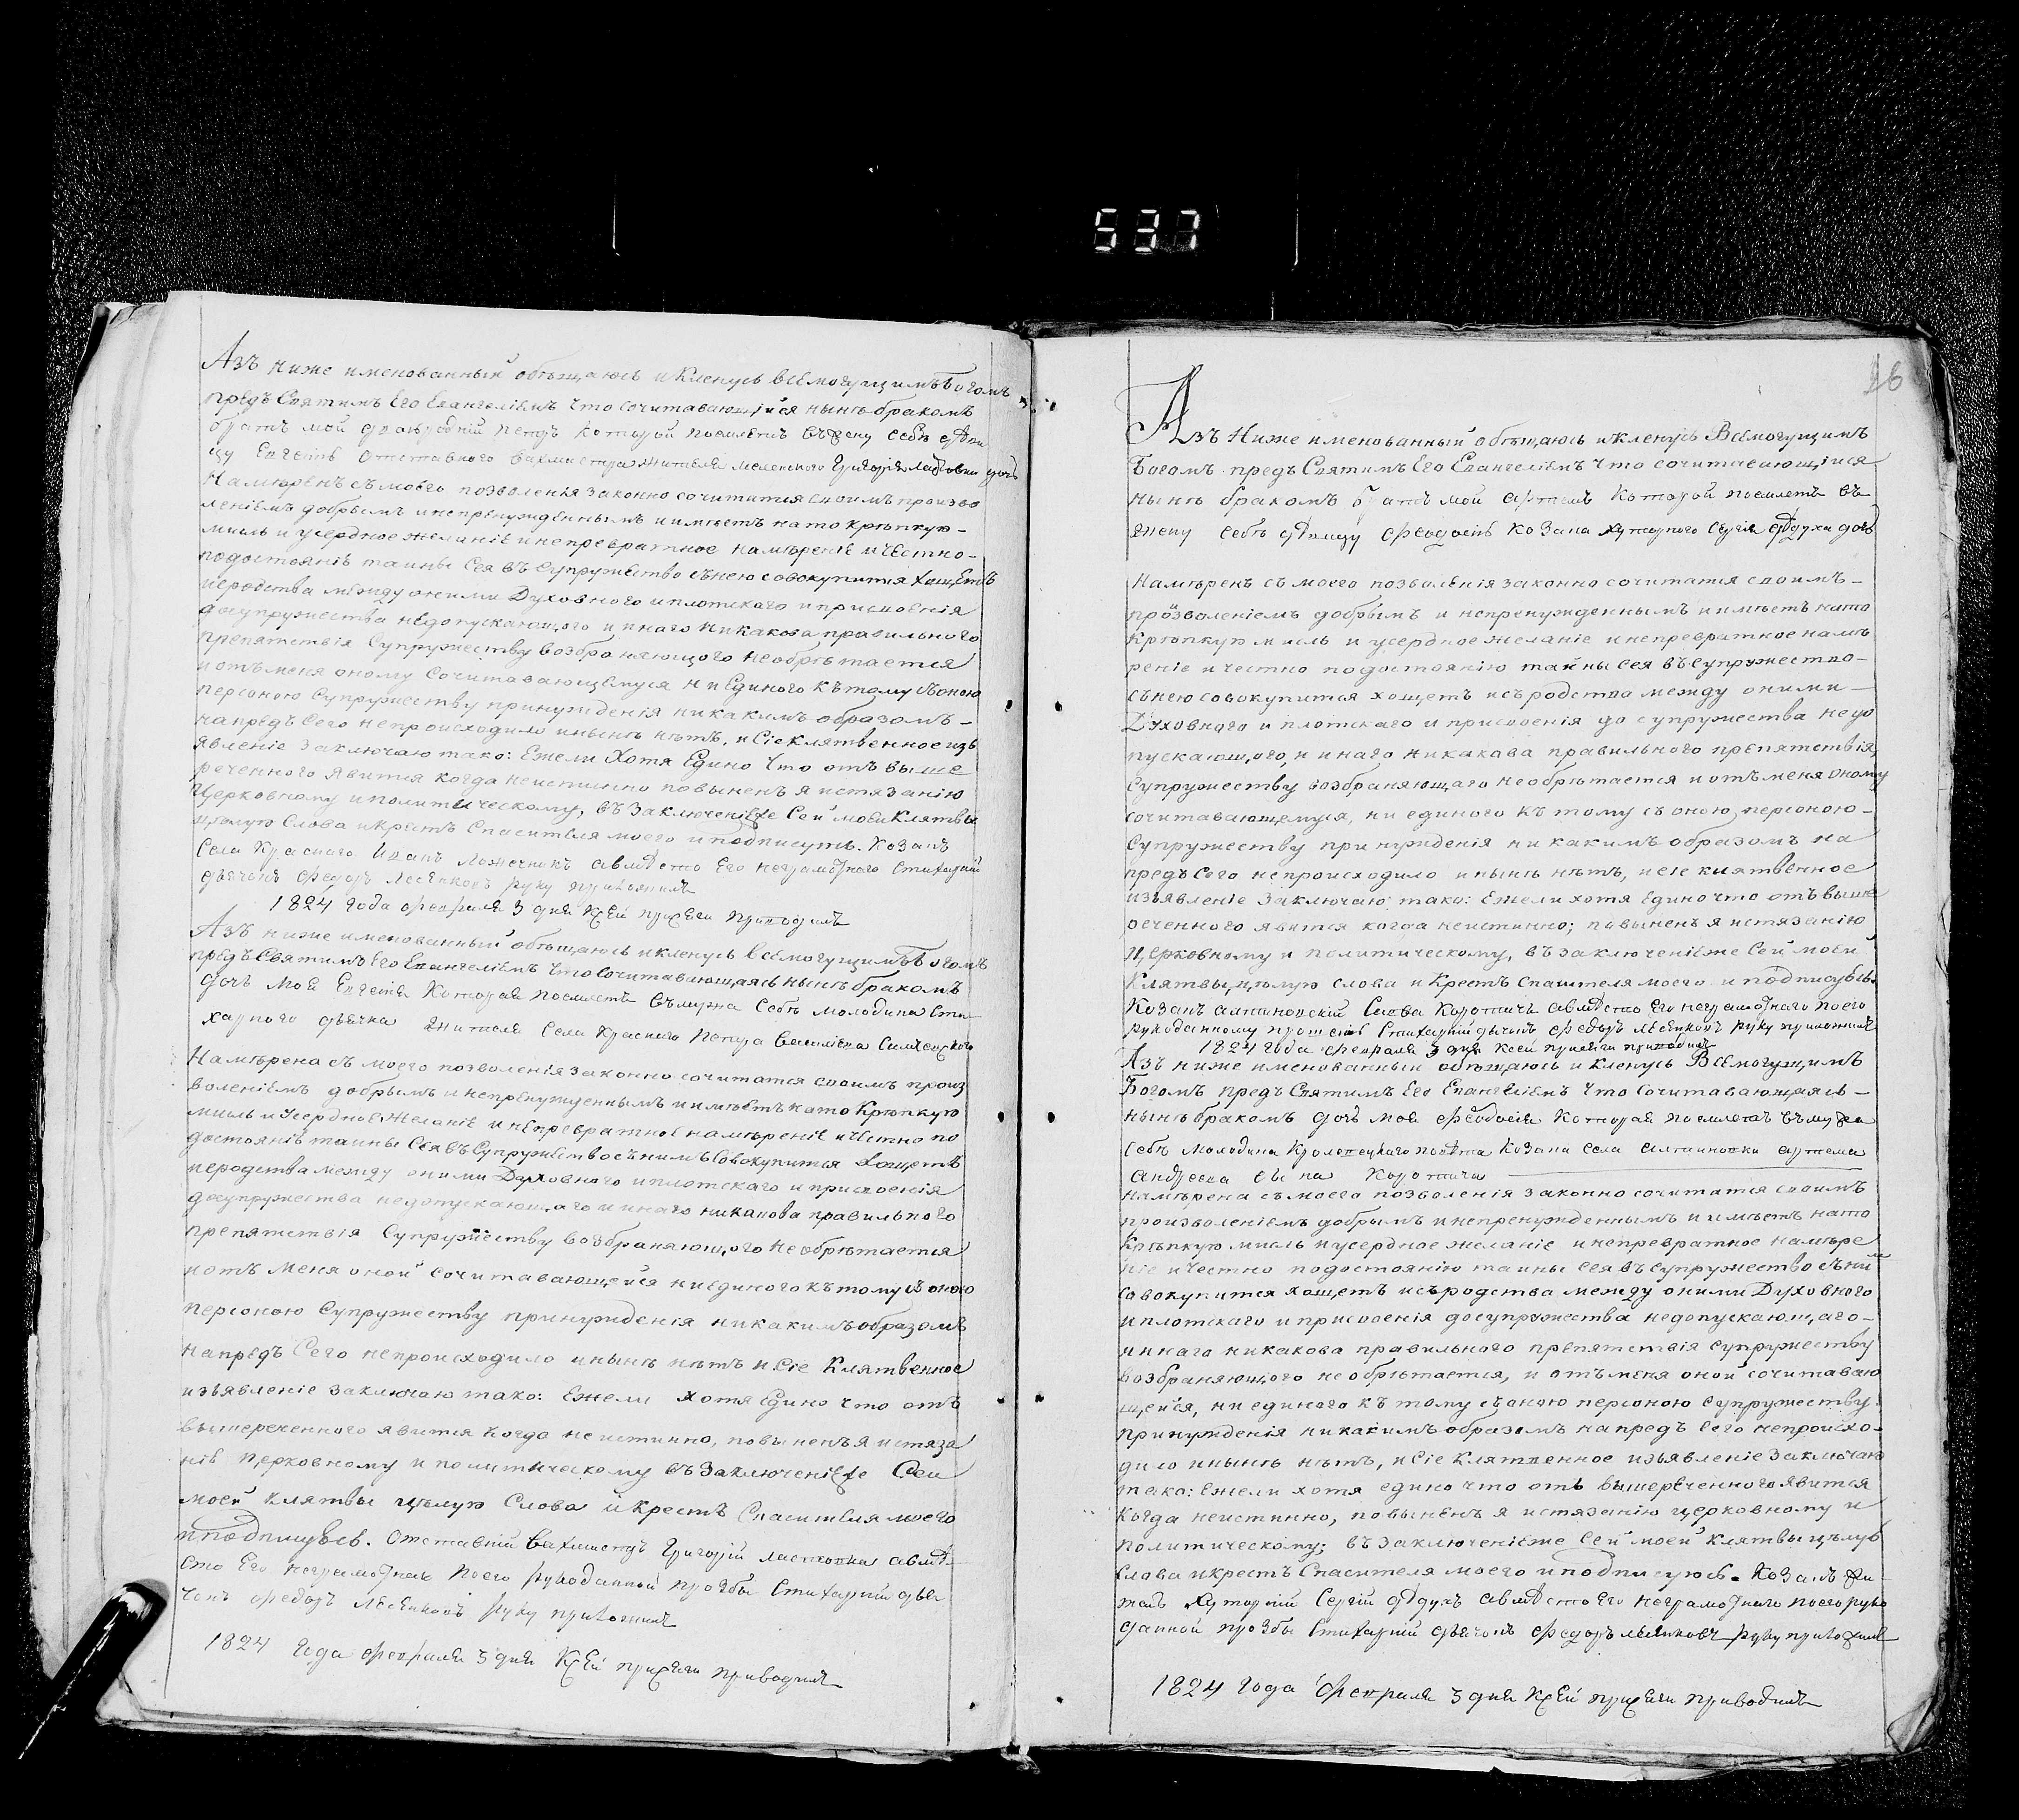 537
Азъ ниже именованный обѣщаюсь и кленусь всемогущимъ Богомъ
предъ Святимъ Его Евангеліемъ что сочитавающійся нынѣ бракомъ
братъ мой Петръ которой поемлетъ въ жену себѣ
цу Евгенію отставного вахмистра жителя Григорія дочь
Намѣренъ съ моего позволенія законно сочитатся своимъ произво
леніемъ добрымъ и непренужденнымъ и имѣетъ на то крѣпкую-
мисль и усердное желаніе и непревратное намѣреніе и честно-
подостоянію таины сея въ супружество сънею совокупится хощетъ
и сродства между оними Духовного и плотскаго и присвоенія
до супружества недопускающого и инаго никакова правильного
препятствія супружеству возбраняющого необрѣтается
и отъ меня оному сочитавающемуся ни единого къ тому съ оною
персоною супружеству принужденія никакимъ образомъ-
напредъ сего непроисходило и нынѣ нѣтъ, и сіе клятвенное изъ
явленіе заключаю тако: Ежели хотя едино что отъ выше
реченного явится когда неистинно повыненъ я истязанію
церковному и политическому, въ заключеніе же сей моей клятвы
цѣлую слова и крестъ Спасителя моего и подписуюсь. Козакъ
села Красного Иванъ а вмѣсто его неграмотного стихарній
дьячокъ Федоръ руку приложилъ
1824 года февраля 3 дня к сей присяги приводилъ
Азъ ниже именованный обѣщаюсь и кленусь всемогущимъ Богомъ
предъ Святимъ Его Евангеліемъ что сочитавающаясь нынѣ бракомъ
дочь моя Евгенія которая поемлетъ въ мужа себѣ молодика сти
харного дьячка жителя села Красного Петра Василіева
Намѣрена съ моего позволенія законно сочитатся своимъ произ
воленіемъ добрымъ и непренужденнымъ и имѣетъ на то крѣпкую
мисль и усердное желаніе и непревратное намѣреніе и честно по
достоянію таины сея въ супружество съ нимъ совокупится хощетъ
и сродства между оними Духовного и плотскаго и присвоенія
до супружества недопускающаго и инаго никакова правильного
препятствія супружеству возбраняющого необрѣтается
и отъ меня оной сочитавающейся ни единого къ тому съ оною
персоною супружеству принужденія никакимъ образомъ
напредъ сего непроисходило и нынѣ нѣтъ и сіе клятвенное
изъявленіе заключаю тако: Ежели хотя едино что отъ
вышереченного явится когда неистинно, повыненъ я истяза
нію церковному и политическому въ заключеніе же сей
моей клятвы цѣлую слова и крестъ Спасителя моего
и подписуюсь. Отставній вахмистръ Григорій а вмѣ
сто его неграмотнаго по его рукоданной прозбы стихарній дья
чокъ Федоръ руку приложилъ
1824 года февраля 3 дня к сей присяги приводилъ
26
Азъ ниже именованный обѣщаюсь и кленусь Всемогущимъ
Богомъ предъ Святимъ Его Евангеліемъ что сочитавающійся
нынѣ бракомъ братъ мой Артемъ которой поемлетъ въ
жену себѣ дѣвицу Феодосію козака хуторного Сергія Дѣдуха дочь
Намѣренъ съ моего позволенія законно сочитатся своимъ-
произволеніемъ добрымъ и непренужденнымъ и имѣетъ на то
крѣпкую мисль и усердное желаніе и непревратное намѣ
реніе и честно подостоянію тайны сея въ супружество-
сънею совокупится хощетъ и съродства между оними-
Духовного и плотскаго и присвоенія до супружества недо
пускающого, и инаго никакава правильного препятствія,
супружеству возбраняющаго необрѣтается и отъ меня оному
сочитавающемуся, ни единого къ тому съ оною персоною-
супружеству принужденія никакимъ образомъ на
предъ сего непроисходило и нынѣ нѣтъ, и сіе клятвенное
изъявленіе заключаю тако: Ежели хотя едино что отъ выше
реченного явится когда неистинно; повыненъ я истязанію
церковному и политическому, въ заключеніе же сей моей
клятвы, цѣлую слова и крестъ Спасителя моего и подписуюсь.
Козакъ алтиновскій Савва Коротичъ а вмѣсто его неграмотнаго по его
рукоданному прошенію стихарній дьячокъ Федоръ руку приложилъ
1824 года февраля 3 дня к сей присяги приводилъ
Азъ ниже именованный обѣщаюсь и кленусь Всемогущимъ
Богомъ предъ Святимъ Его Евангеліемъ что сочитавающаясь-
нынѣ бракомъ дочь моя Феодосія которая поемлетъ въ мужа
себѣ молодика Кролевецкаго повѣта козака села Алтиновки Артема
Андреева сына Коротича
Намѣрена съ моего позволенія законно сочитатся своимъ
произволеніемъ добрымъ и непренужденнымъ и имѣетъ на то
крѣпкую мисль и усердное желаніе и непревратное намѣре
ніе и честно подостоянію таины сея въ супружество съ нимъ
совокупится хощетъ и съродства между оними Духовного
и плотскаго и присвоенія до супружества недопускающаго-
и инаго никакова правильного препятствія супружеству
возбраняющого необрѣтается, и отъ меня оной сочитаваю
щейся, ни единого къ тому съ оною персоною супружеству
принужденія никакимъ образомъ напредъ сего непроисхо-
дило и нынѣ нѣтъ, и сіе клятвенное изъявленіе заключаю
тако: Ежели хотя едино что отъ вышереченного явится
когда неистинно, повыненъ я истязанію церковному и
политическому; въ заключеніе же сей моей клятвы цѣлую
слова и крестъ Спасителя моего и подписуюсь. Козакъ
хуторній Сергій Дѣдухъ а вмѣсто его неграмотнаго по его руко
данной прозбы стихарній дьячокъ Федоръ руку приложилъ
1824 года февраля 3 дня к сей присяги приводилъ